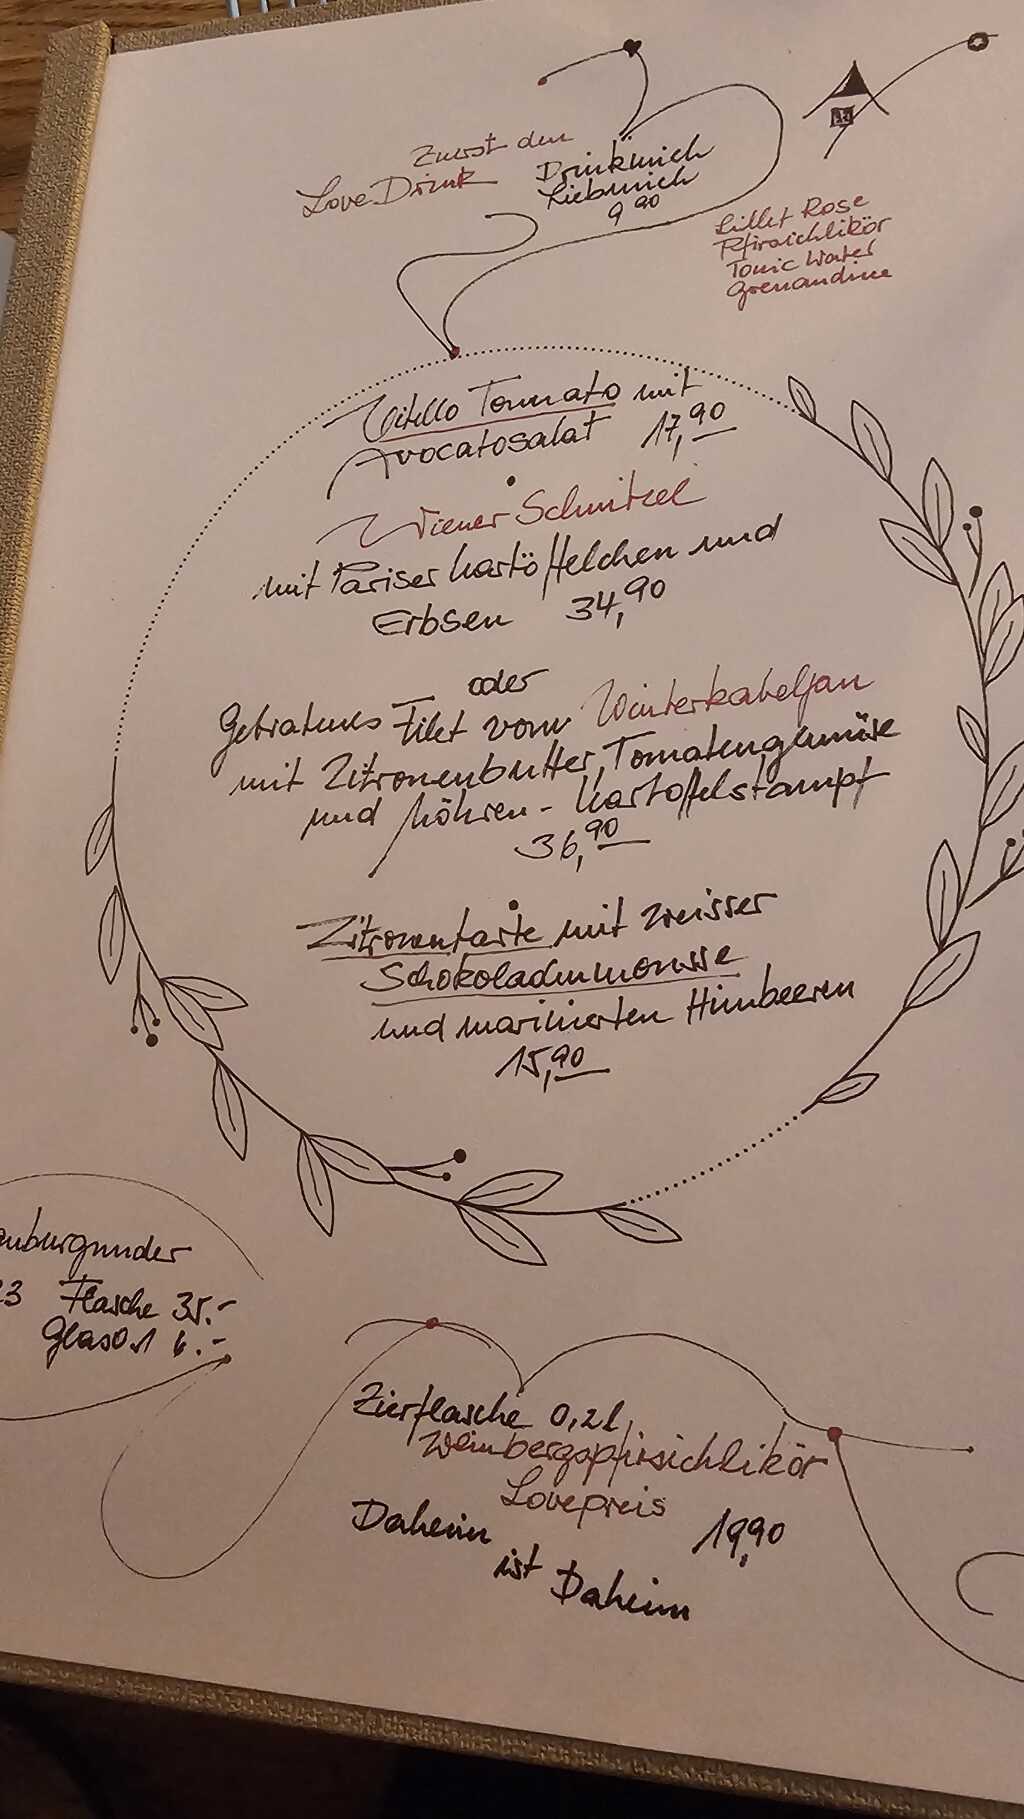 Zuerst den
Love Drink
Drinkmich
Liebmich
9 90
Lillet Rose
Pfirsichlikör
Tonic Water
Grenandine
Vitello Tonnato mit
Avocatosalat 17,90
Wiener Schnitzel
mit Pariser Kartöffelchen und
Erbsen 34,90
oder
Gebratenes Filet vom Winterkabeljau
mit Zitronenbutter, Tomatengemüse
und Möhren-Kartoffelstampf
36,90
Zitronentarte mit weisser
Schokoladenmousse
und marinierten Himbeeren
15,90
uburgunder
23 Flasche 35.-
Glas 0.1 6.-
Zierflasche 0,2 l
Weinbergspfirsichlikör
Lovepreis
19,90
Daheim
ist Daheim